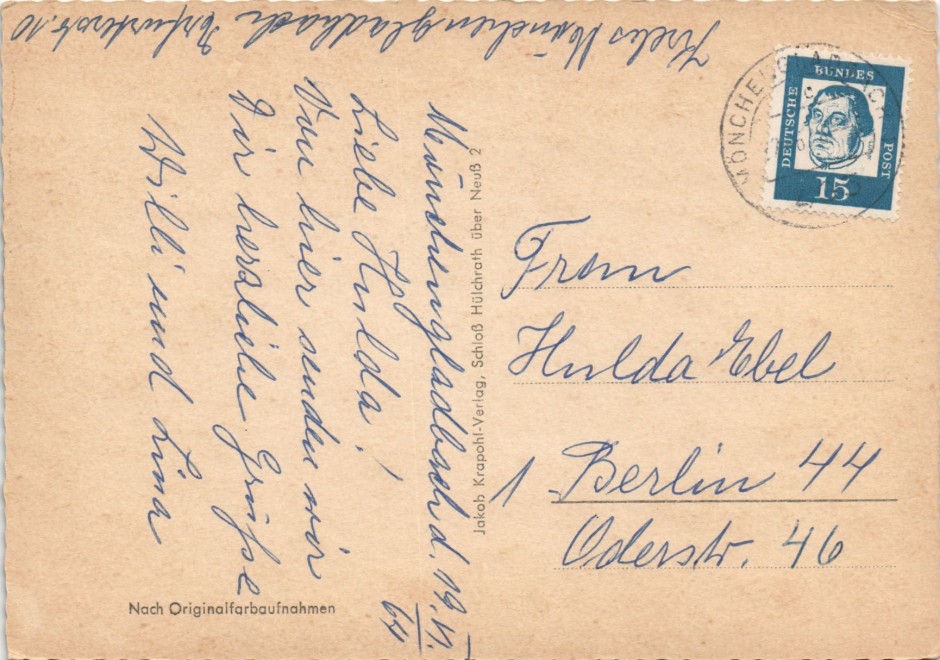 Krebs Mönchengladbach Erfurterstr. 10
Mönchengladbach d. 19.VI.
64
Liebe Hulda!
Von hier senden wir
Dir herzliche Grüße
Willi und Lina
Jakob Krapohl-Verlag, Schloß Hülchrath über Neuß 2
Nach Originalfarbaufnahmen
MÖNCHENGLADBACH
DEUTSCHE
BUNDES
POST
15
Frau
Hulda Ebel
1 Berlin 44
Oderstr. 46